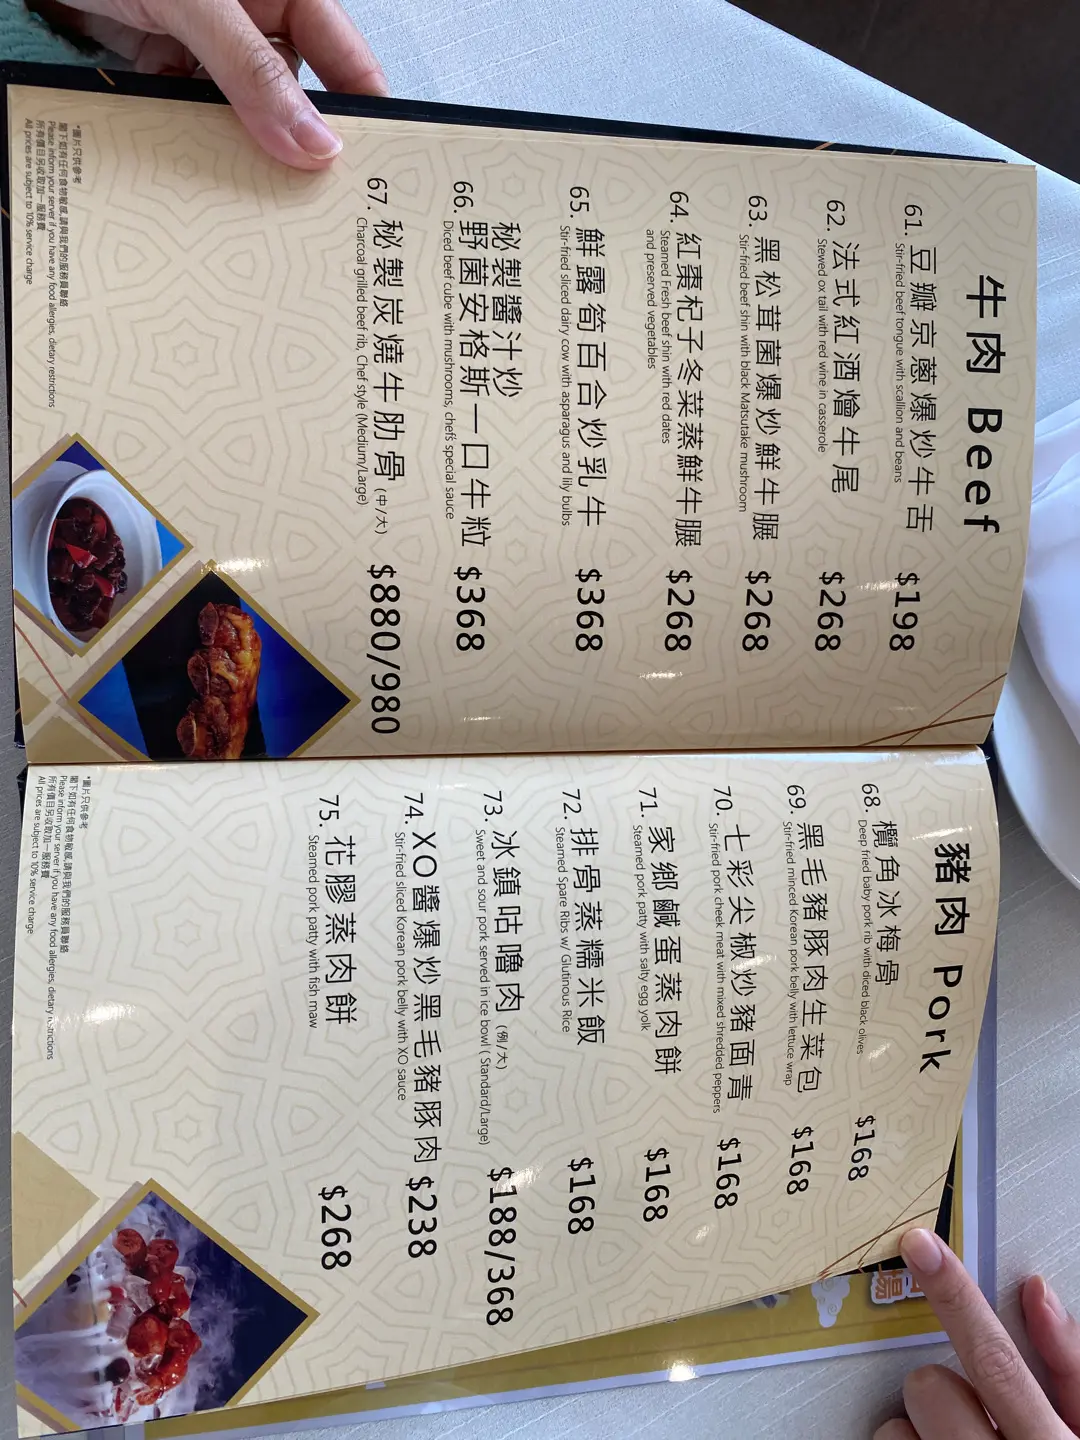 牛肉 Beef
61. 豆瓣京蔥爆炒牛舌 $198
Stir-fried beef tongue with scallion and beans
62. 法式紅酒燴牛尾 $268
Stewed ox tail with red wine in casserole
63. 黑松茸菌爆炒鮮牛𦟌 $268
Stir-fried beef shin with black Matsutake mushroom
64. 紅棗杞子冬菜蒸鮮牛𦟌 $268
Steamed Fresh beef shin with red dates
and preserved vegetables
65. 鮮露筍百合炒乳牛 $368
Stir-fried sliced dairy cow with asparagus and lily bulbs
秘製醬汁炒
66. 野菌安格斯一口牛粒 $368
Diced beef cube with mushrooms, chef's special sauce
67. 秘製炭燒牛肋骨 (中/大) $880/980
Charcoal grilled beef rib, Chef style (Medium/Large)
*圖片只供參考
閣下如有任何食物敏感,請與我們的服務員聯絡
Please inform your server if you have any food allergies, dietary restrictions
所有價目另收取加一服務費
All prices are subject to 10% service charge
豬肉 Pork
68. 欖角冰梅骨 $168
Deep fried baby pork rib with diced black olives
69. 黑毛豬豚肉生菜包 $168
Stir-fried minced Korean pork belly with lettuce wrap
70. 七彩尖椒炒豬面青 $168
Stir-fried pork cheek meat with mixed shredded peppers
71. 家鄉鹹蛋蒸肉餅 $168
Steamed pork patty with salty egg yolk
72. 排骨蒸糯米飯 $168
Steamed Spare Ribs w/ Glutinous Rice
73. 冰鎮咕嚕肉 (例/大) $188/368
Sweet and sour pork served in ice bowl ( Standard/Large)
74. XO醬爆炒黑毛豬豚肉 $238
Stir-fried sliced Korean pork belly with XO sauce
75. 花膠蒸肉餅 $268
Steamed pork patty with fish maw
*圖片只供參考
閣下如有任何食物敏感,請與我們的服務員聯絡
Please inform your server if you have any food allergies, dietary restrictions
所有價目另收取加一服務費
All prices are subject to 10% service charge